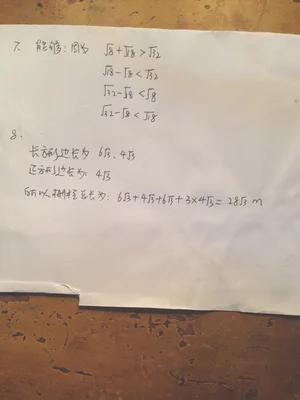 7. 能够：因为 √8+√18>√32
√18-√8<√32
√32-√8<√18
√32-√8<√18
8.
长方形边长为 6√3、4√3
正方形边长为：4√3
所以栅栏总长为：6√3+4√3+6√3+3×4√3=28√3 m